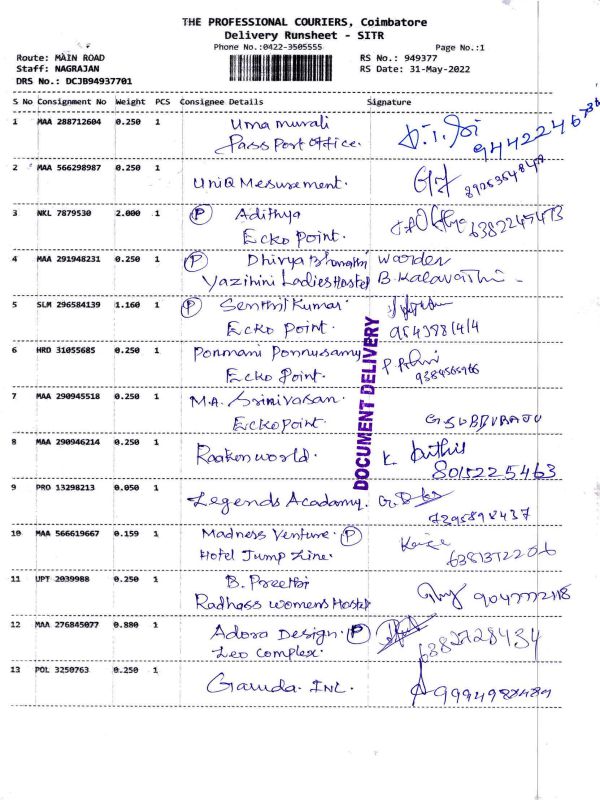 THE PROFESSIONAL COURIERS, Coimbatore
Delivery Runsheet - SITR
Phone No.:0422-3505555
Page No.:1
Route: MAIN ROAD
RS No.: 949377
Staff: NAGRAJAN
RS Date: 31-May-2022
DRS No.: DCJB94937701
S No Consignment No Weight PCS Consignee Details Signature
1 MAA 288712604 0.250 1 Uma murali
Pass Port office.
2 MAA 566298987 0.250 1
UNIQ Mesurement.
3 NKL 7879530 2.000 1 P Adithya
Ecko Point. 6382245473
4 MAA 291948231 0.250 1 P Dhivya Bharathi Warden
Yazihini Ladies Hostel B. Kalavathi
5 SLM 296584139 1.160 1 P Senthil Kumar.
Ecko Point.
6 HRD 31055685 0.250 1 Ponmani Ponnusamy
Ecko Point.
7 MAA 290945518 0.250 1 M.A. Srinivasan.
Ecko Point.
8 MAA 290946214 0.250 1 Raaken world. K.
8015225463
9 PRO 13298213 0.050 1
Legends Acadamy.
7395898437
10 MAA 566619667 0.159 1 Madness Venture. P
Hotel Jump Line.
11 UPT 2039988 0.250 1 B. Preethi
Radhass womens Hostel
12 MAA 276845077 0.880 1 Adora Design. P
Leo complex. 6382728434
13 POL 3250763 0.250 1
Garuda. INC.
DOCUMENT DELIVERY